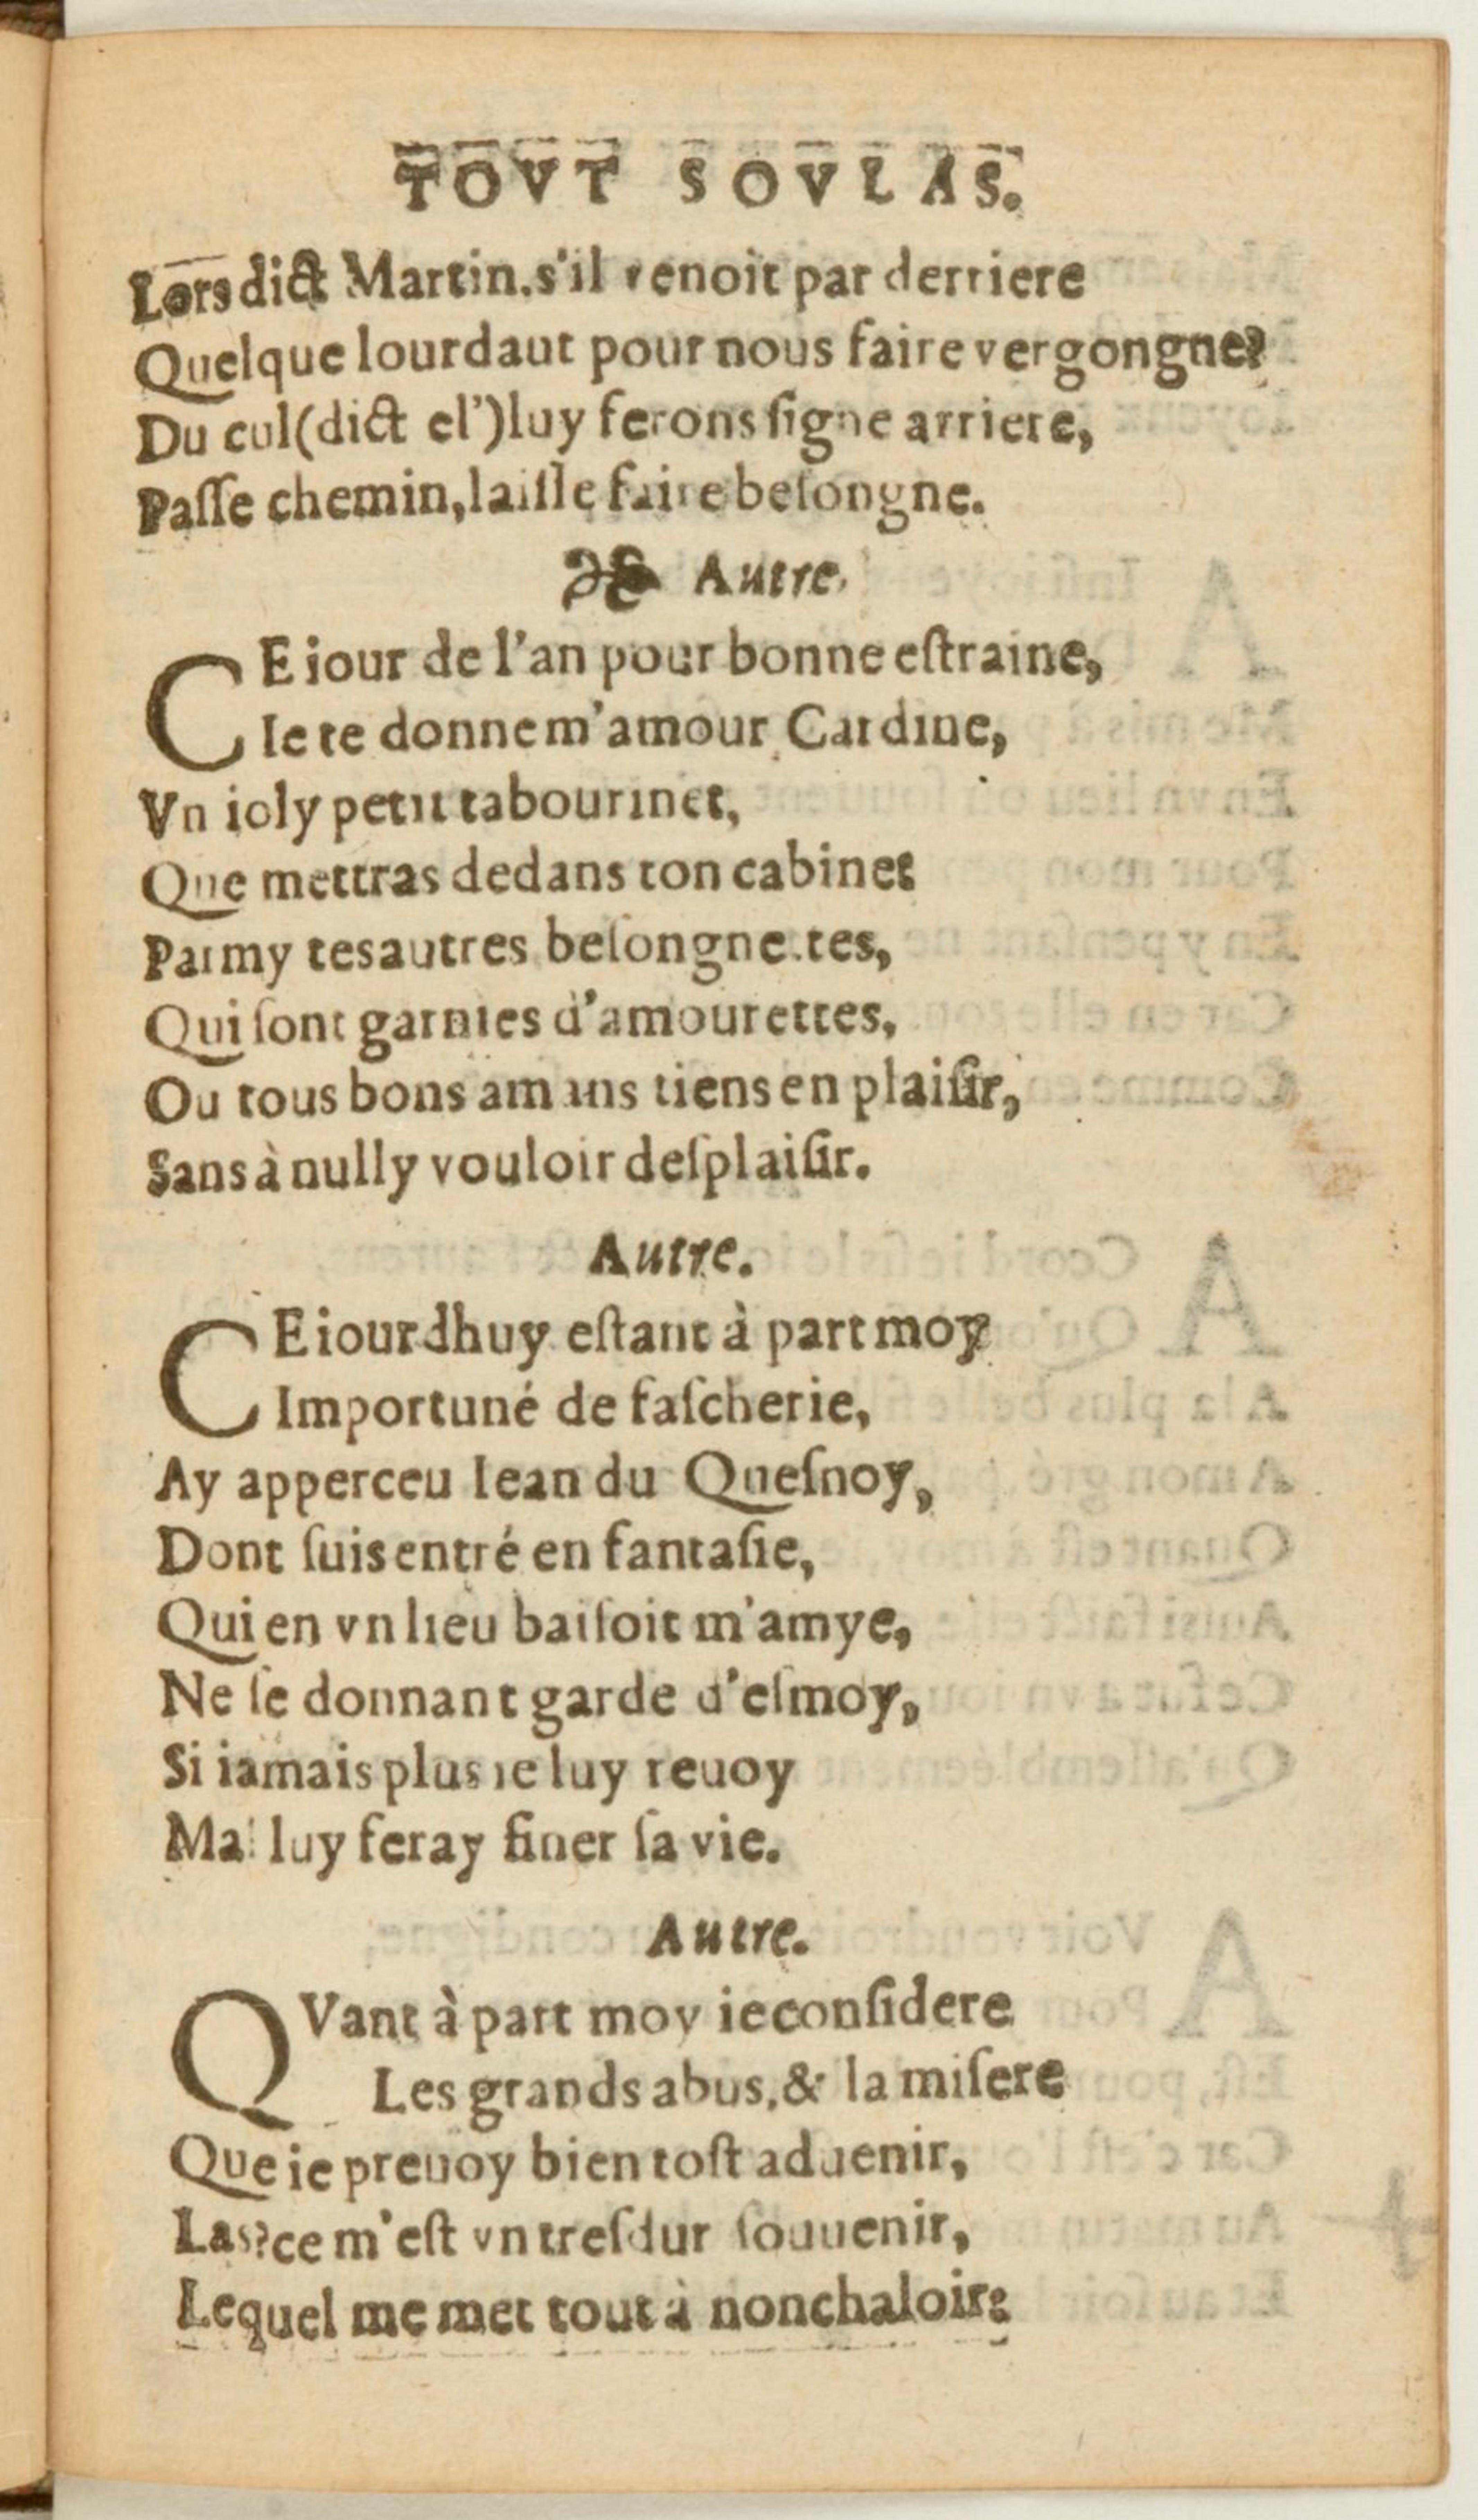 TOVT SOVLAS.
Lors dict Martin. s'il venoit par derriere
Quelque lourdaut pour nous faire vergongne?
Du cul (dict el') luy ferons ſigne arriere,
Paſſe chemin, laiſſe faire beſongne.
Autre.
CE iour de l'an pour bonne eſtraine,
Ie te donne m'amour Cardine,
Vn ioly petit tabourinet,
Que mettras dedans ton cabinet
Parmy tes autres beſongnettes,
Qui ſont garnies d'amourettes,
Ou tous bons amans tiens en plaiſir,
Sans à nully vouloir deſplaiſir.
Autre.
CE iourdhuy eſtant à part moy
Importuné de faſcherie,
Ay apperceu Iean du Queſnoy,
Dont ſuis entré en fantaſie,
Qui en vn lieu baiſoit m'amye,
Ne ſe donnant garde d'eſmoy,
Si iamais plus ie luy reuoy
Mal luy feray finer ſa vie.
Autre.
QVant à part moy ie conſidere
Les grands abus, & la miſere
Que ie preuoy bien toſt aduenir,
Las? ce m'eſt vn treſdur ſouuenir,
Lequel me met tout à nonchaloir: